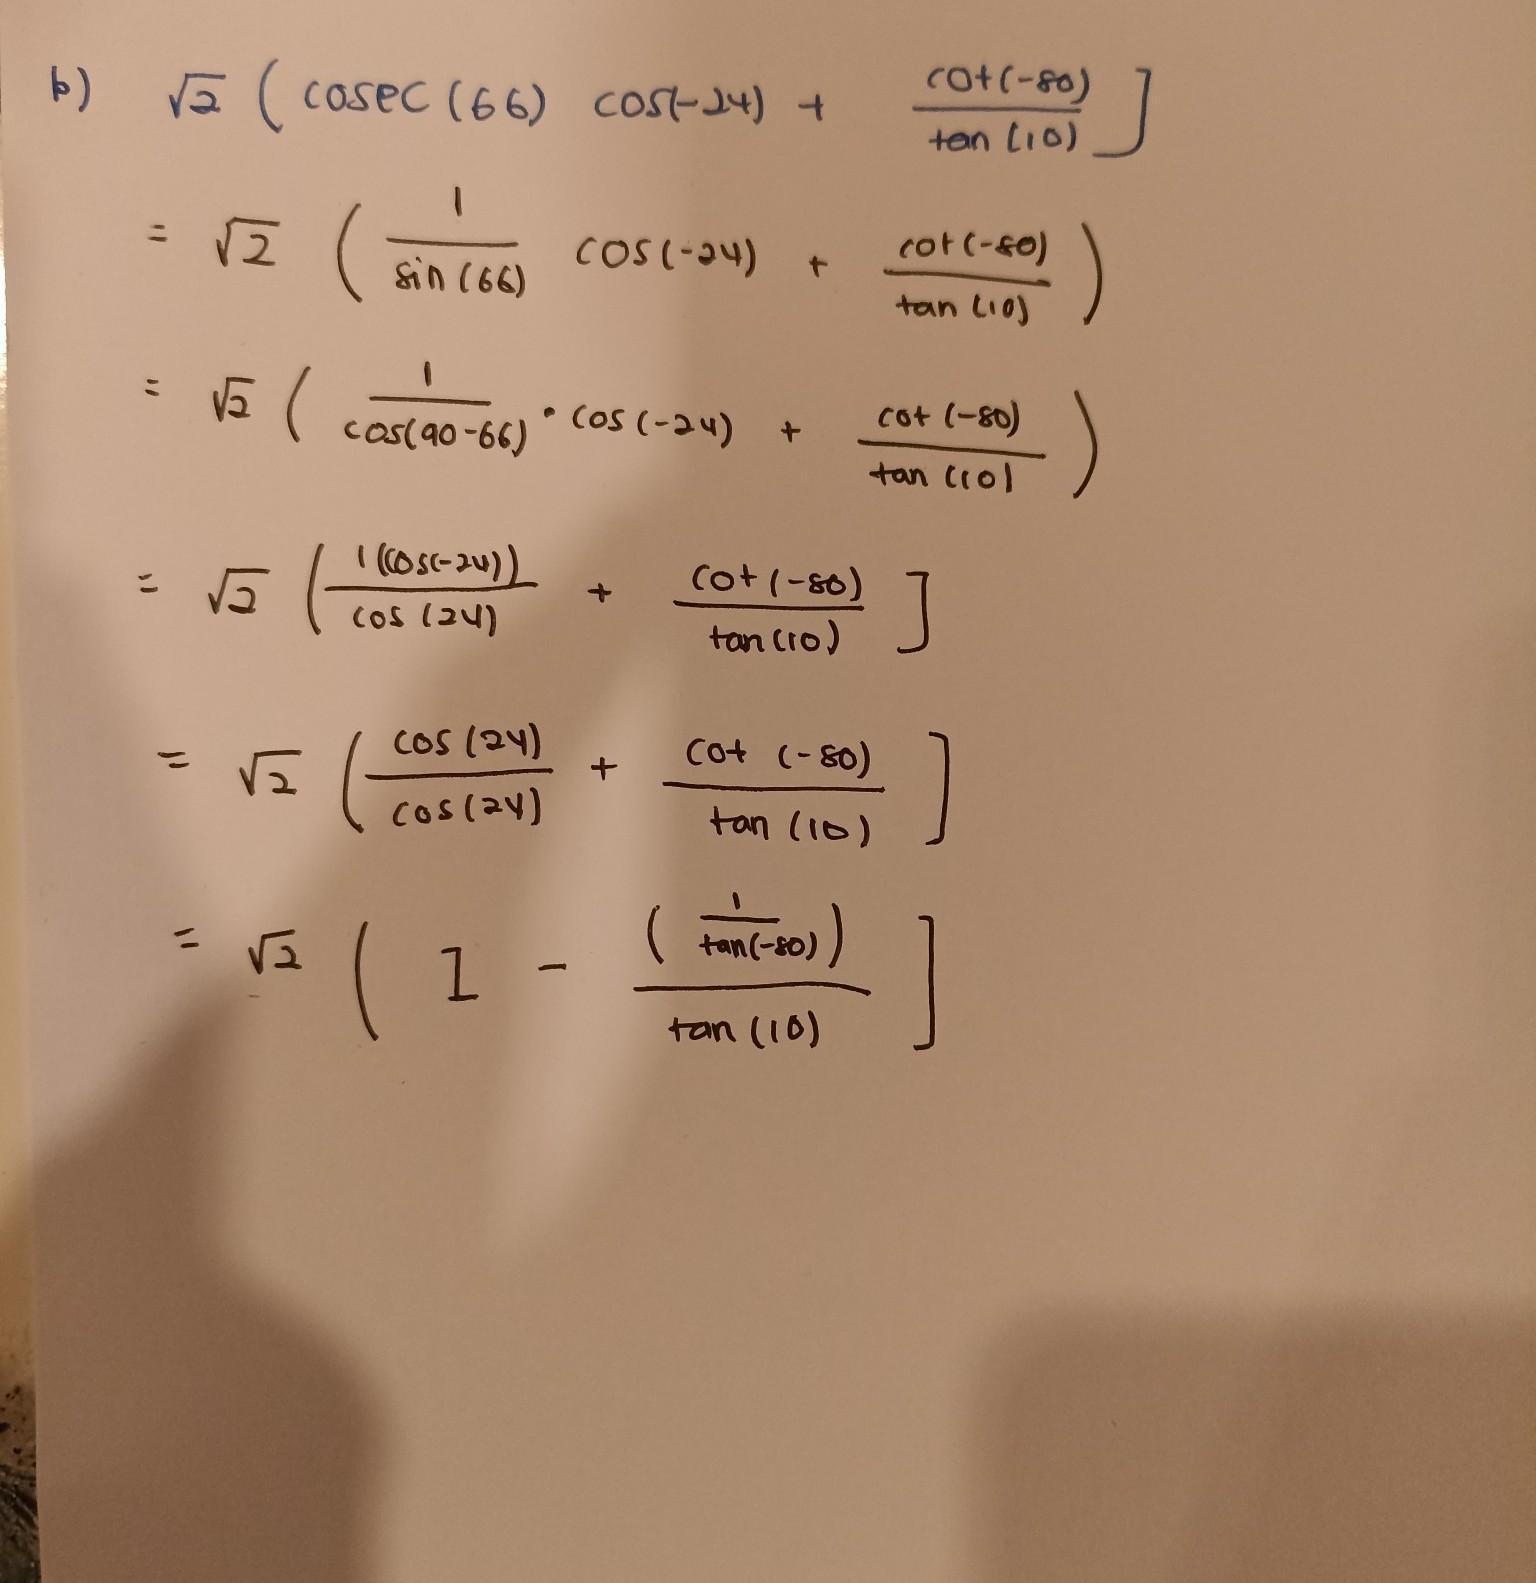 b) √2 ( cosec (66) cos(-24) + cot(-80)/tan (10) ]
= √2 ( 1/sin (66) cos(-24) + cot(-80)/tan (10) )
= √2 ( 1/cos(90-66) • cos (-24) + cot (-80)/tan (10) )
= √2 ( 1(cos(-24))/cos (24) + cot (-80)/tan (10) ]
= √2 ( cos (24)/cos (24) + cot (-80)/tan (10) ]
= √2 ( 1 - ( 1/tan(-80) )/tan (10) ]